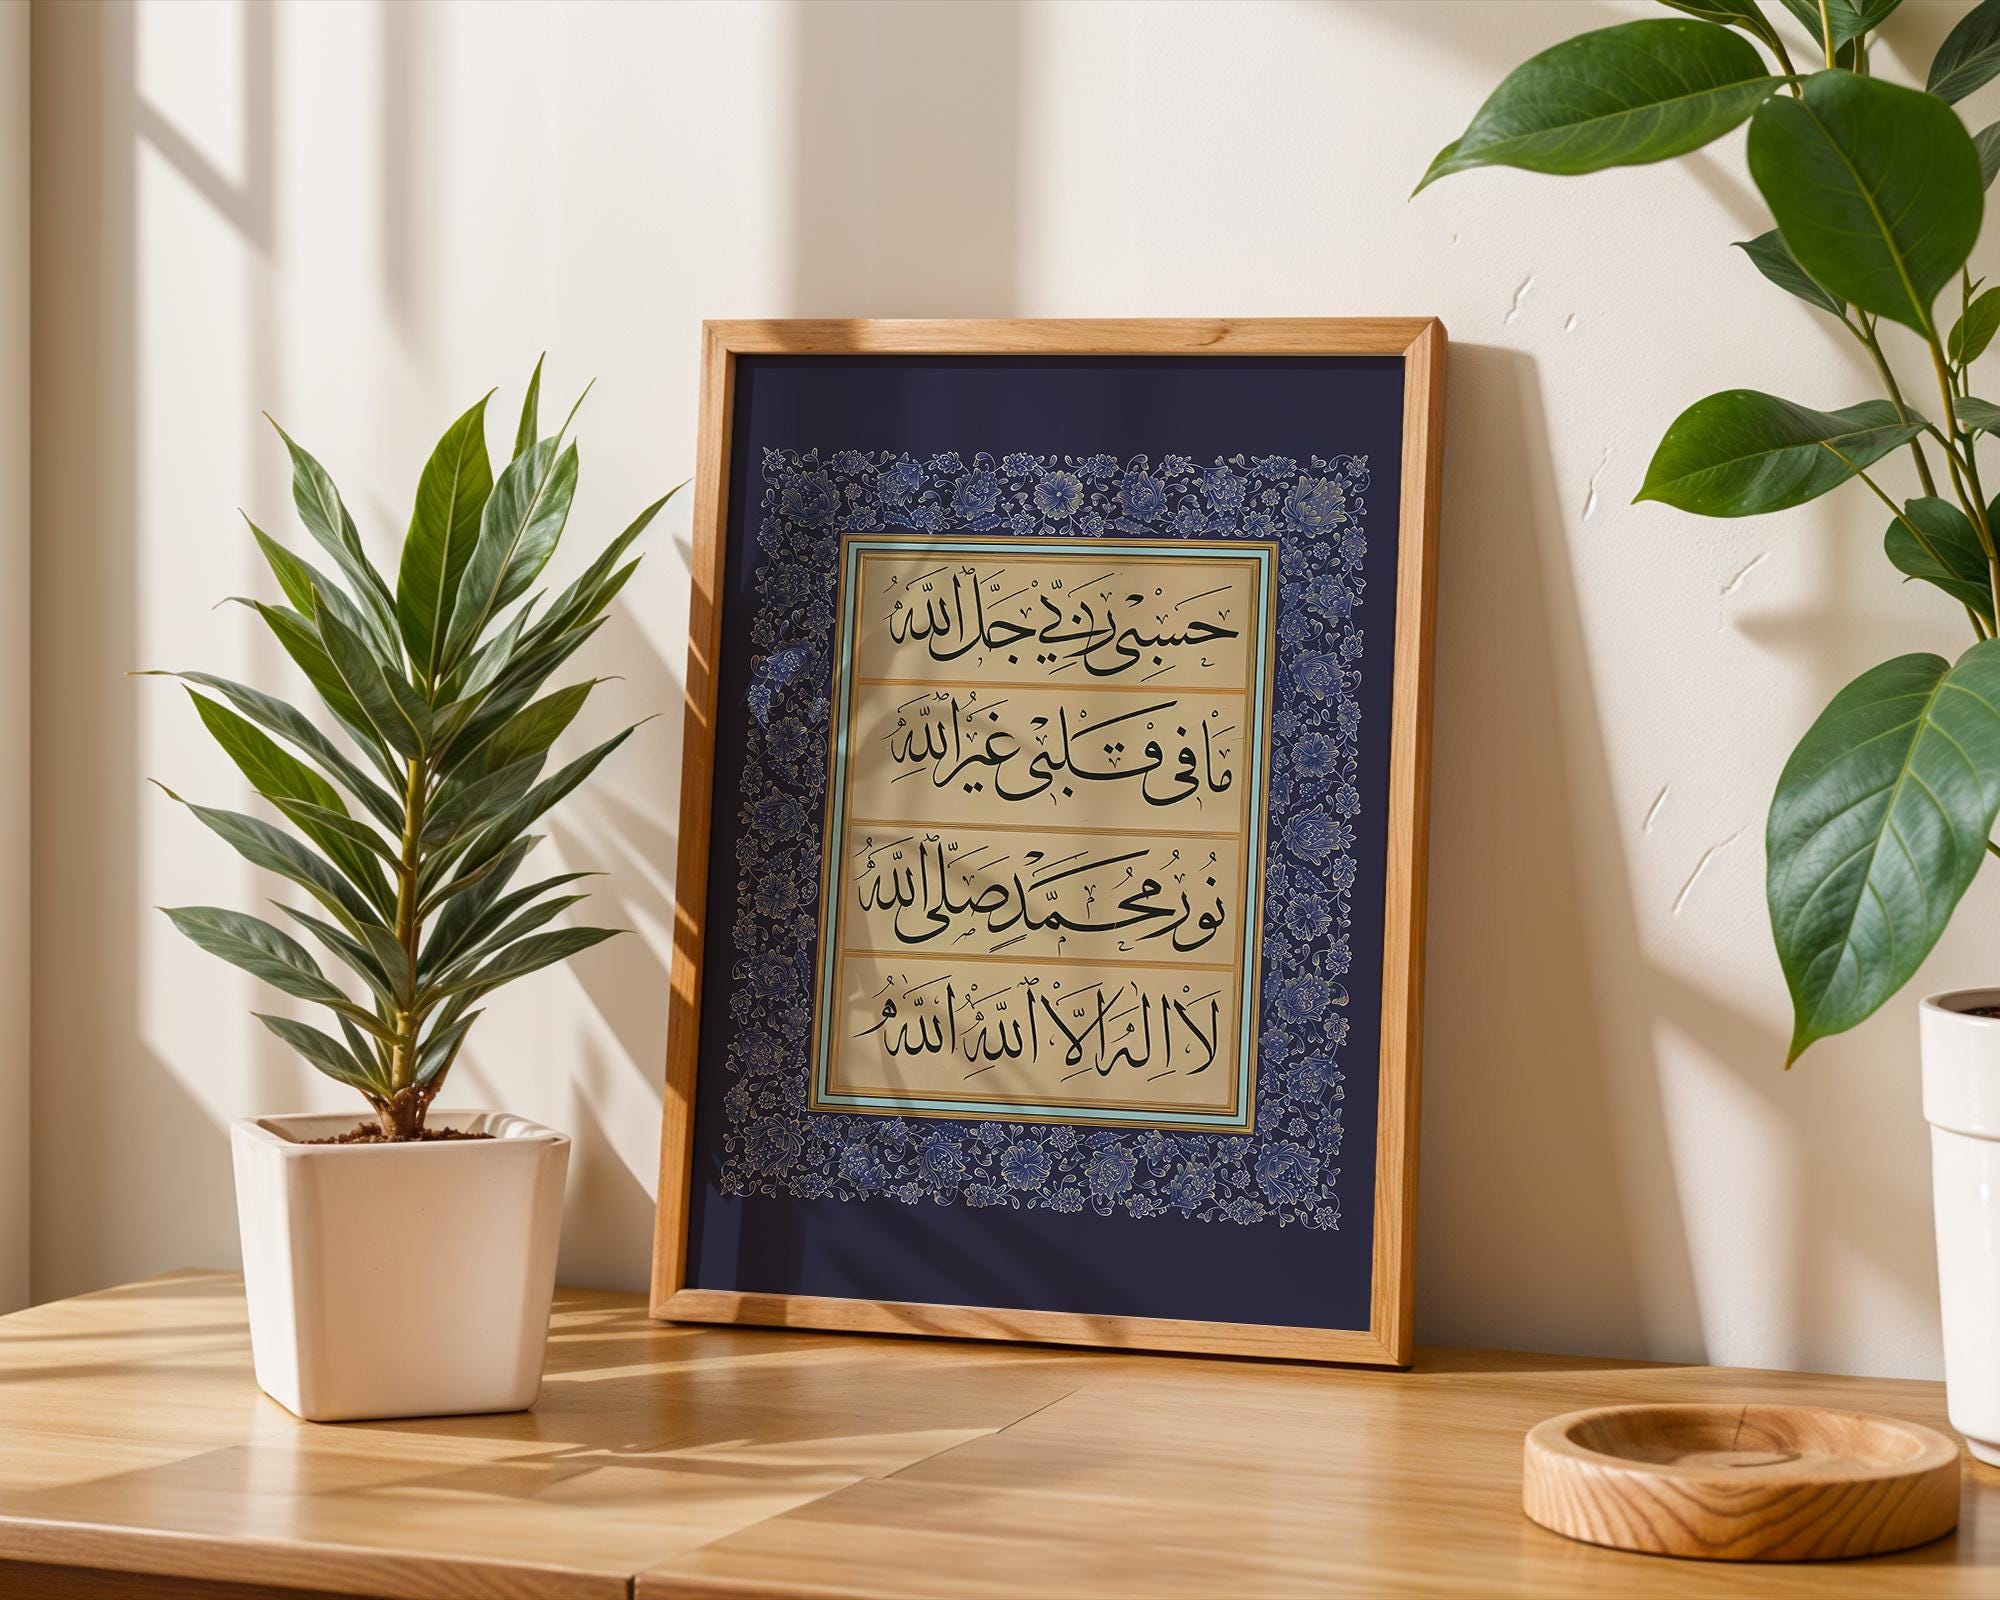 حَسْبِي رَبِّي جَلَّ اللّٰهُ
مَا فِي قَلْبِي غَيْرُ اللّٰهِ
نُورُ مُحَمَّدٍ صَلَّى اللّٰهُ
لَا إِلٰهَ إِلَّا اللّٰهُ اللّٰهُ